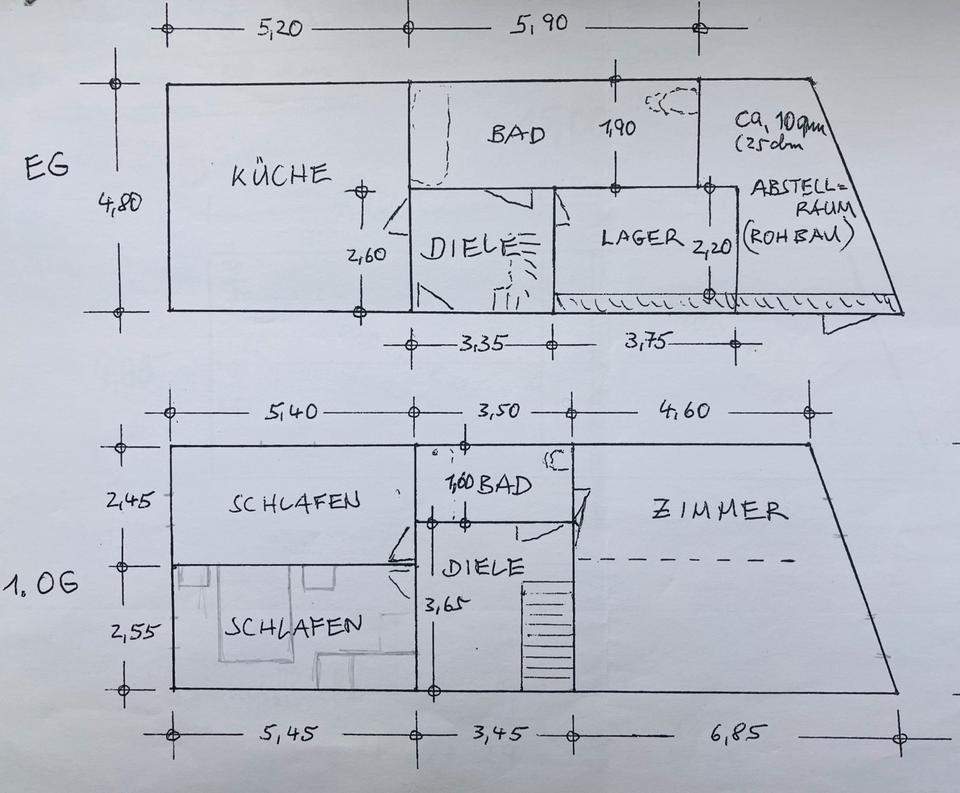 5,20 5,90
EG
4,80
KÜCHE
BAD
1,90
Ca. 10qm
ABSTELL=
RAUM
(ROHBAU)
2,60
DIELE
LAGER
2,20
3,35 3,75
5,40 3,50 4,60
1. OG
2,45
SCHLAFEN
1,60 BAD
ZIMMER
DIELE
2,55
SCHLAFEN
3,65
5,45 3,45 6,85